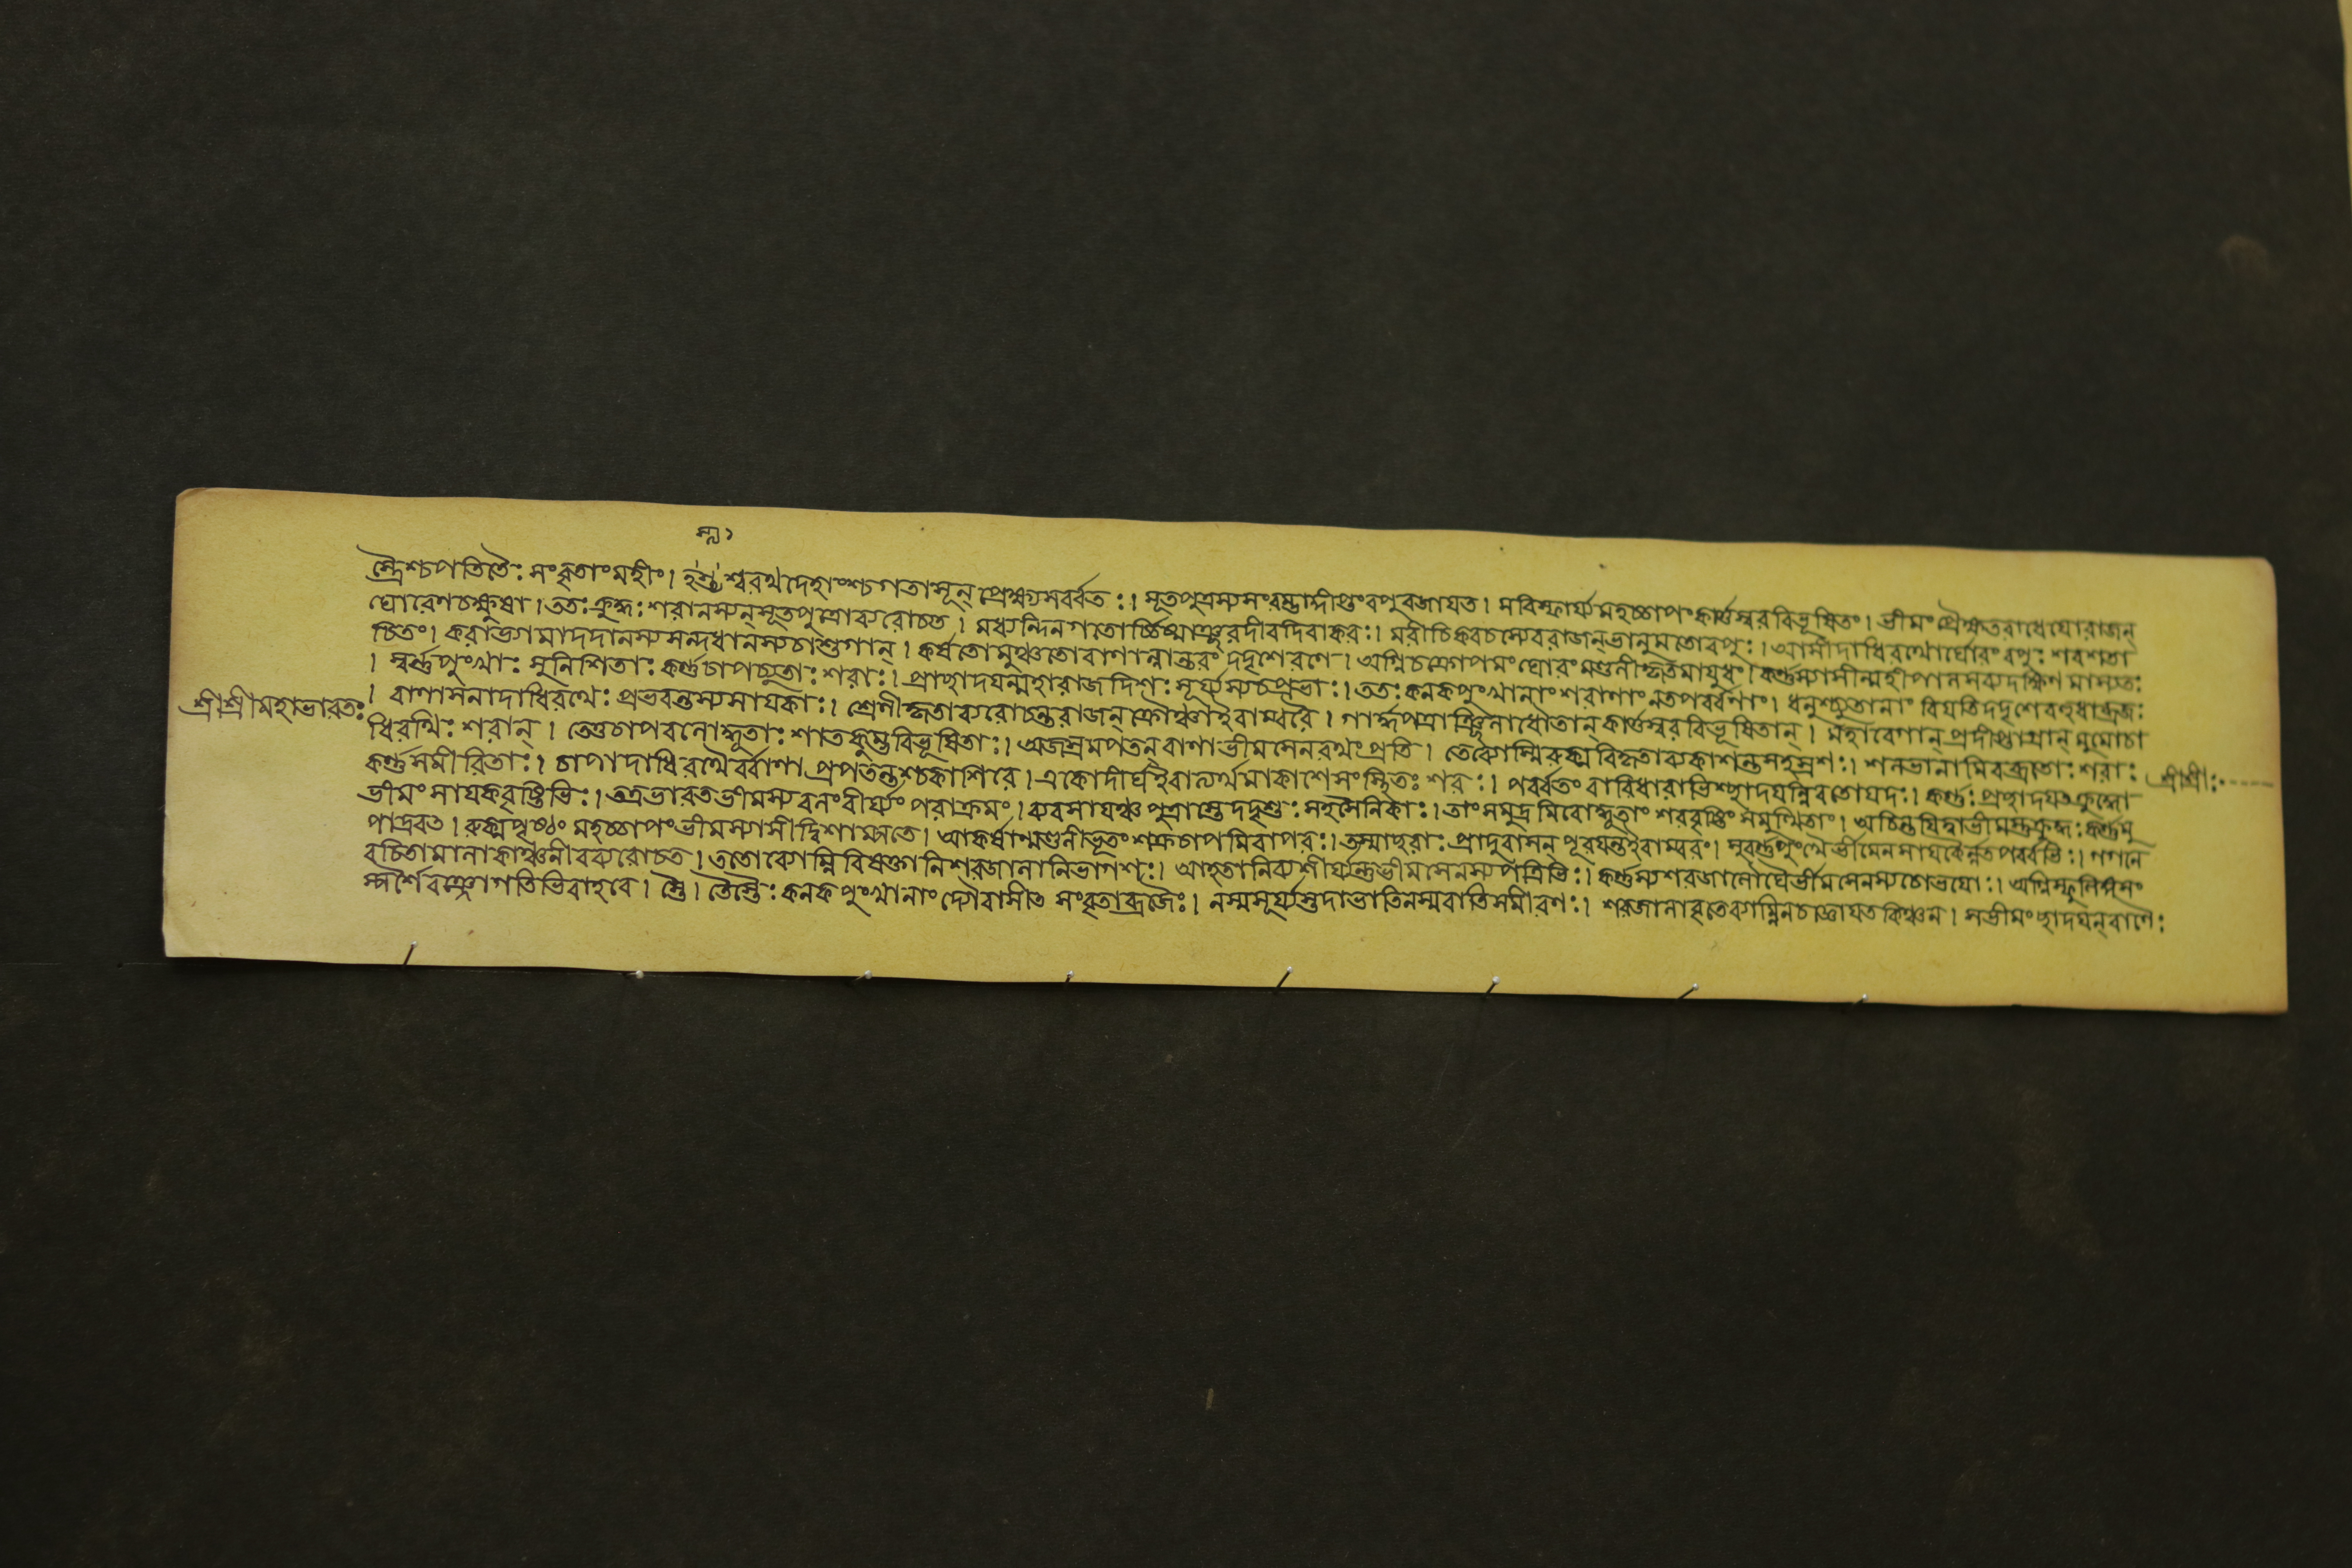 ম্ন্যা
স্ত্রৈশ্চপতিতৈঃ সংবৃতাংমহীং। হস্ত্যশ্বরথদেহাংশ্চগতাসূন্ প্রেক্ষ্যসর্ব্বতঃ। সূতপুত্রস্যসংরম্ভাদ্দীপ্তংবপুরজায়ত। সবিস্ফার্য্যমহচ্চাপংকার্ত্তস্বরবিভূষিতং। ভীমং প্রৈক্ষতরাধেয়োরাজন্
ঘোরেণচক্ষুষা। ততঃক্রুদ্ধঃ শরানস্যন্সূতপুত্রোব্যরোচত। মধ্যন্দিনগতোর্চ্চিষ্মাঞ্ছরদীবদিবাকরঃ। মরীচিকবচস্যেবরাজন্ভানুমতোবপুঃ। আসীদাধিরথোর্ঘোরং বপুঃ শরশতা
চিতং। করাভ্যামাদদানস্যসন্দধানস্যচাশুগান্। কর্ষতোমুঞ্চতোবাণান্নান্তরং দদৃশেরণে। অগ্নিচক্রোপমং ঘোরং মণ্ডলীকৃতমায়ুধং। কর্ণস্যাসীন্মহীপালসব্যদক্ষিণমাস্যতঃ
। স্বর্ণপুংখাঃ সুনিশিতাঃ কর্ণচাপচ্যুতাঃ শরাঃ। প্রাচ্ছাদয়ন্মহারাজদিশঃ সূর্য্যস্যচপ্রভাঃ। ততঃ কনকপুংখানাং শরাণাং নতপর্ব্বণাং। ধনুশ্চ্যুতানাং বিয়তিদদৃশেবহুধাব্রজঃ
। বাণাসনাদাধিরথেঃ প্রভবন্তস্যসায়কাঃ। শ্রেণীকৃতাব্যরোচন্তরাজন্ ক্রৌঞ্চাইবাম্বরে। গার্দ্ধপত্রাঞ্ছিলাধৌতান্ কার্ত্তস্বরবিভূষিতান্। মহাবেগান্ প্রদীপ্তাগ্রান্ মুমোচা
ধিরথিঃ শরান্। তেতুচাপবলোদ্ধূতাঃ শাতকুম্ভবিভূষিতাঃ। অজস্রমপতন্ বাণাভীমসেনরথংপ্রতি। তেব্যোম্নিরুক্মবিকৃতাব্যকাশন্তসহস্রশঃ। শলভানামিবব্রাতাঃ শরাঃ
কর্ণসমীরিতাঃ। চাপাদাধিরথের্ব্বাণা প্রপতন্তশ্চকাশিরে। একোদীর্ঘইবাত্যর্থমাকাশেসংস্থিতঃ শরঃ। পর্ব্বতং বারিধারাভিশ্ছাদয়ন্নিবতোয়দঃ। কর্ণঃ প্রাচ্ছাদয়ৎক্রুদ্ধো
ভীমং সায়কবৃষ্টিভিঃ। তত্রভারতভীমস্যবলংবীর্য্যং পরাক্রমং। ব্যবসায়ঞ্চ পুত্রাস্তেদদৃশুঃ সহসৈনিকাঃ। তাংসমুদ্রমিবোদ্ধূতাং শরবৃষ্টিং সমুত্থিতাং। অচিন্তয়িত্বাভীমস্তুক্রুদ্ধঃ কর্ণমু
পাদ্রবত। রুক্মপৃষ্ঠং মহচ্চাপংভীমস্যাসীদ্বিশাম্পতে। আকর্ষান্মণ্ডলীভূতং শক্রচাপমিবাপরং। তস্মাচ্ছরাঃ প্রাদুরাসন্ পূরয়ন্তইবাম্বরং। সুবর্ণপুংখৈর্ভীমেনসায়কৈর্ন্নতপর্ব্বভিঃ। গগনে
রচিতামালাকাঞ্চনীবব্যরোচত। ততোব্যোম্নিবিষক্তানিশরজালানিভাগশঃ। আহতানিব্যশীর্য্যন্তভীমসেনস্যপত্রিভিঃ। কর্ণস্যশরজালৌঘৈর্ভীমসেনস্যচোভয়োঃ। অগ্নিস্ফুলিঙ্গসং
স্পর্শৈরঞ্জোগতিভিরাহবে। স্তৈ। তৈস্তৈঃ কনকপুংখানাং দ্যৌরাসীত সংবৃতাব্রজৈঃ। নস্মসূর্য্যস্তদাভাতিনস্মবাতিসমীরণঃ। শরজালাবৃতেব্যোম্নিনচাজ্ঞায়তকিঞ্চন। সভীমংছাদয়ন্বাণৈঃ
শ্রীশ্রীমহাভারতঃ
শ্রীশ্রীঃ